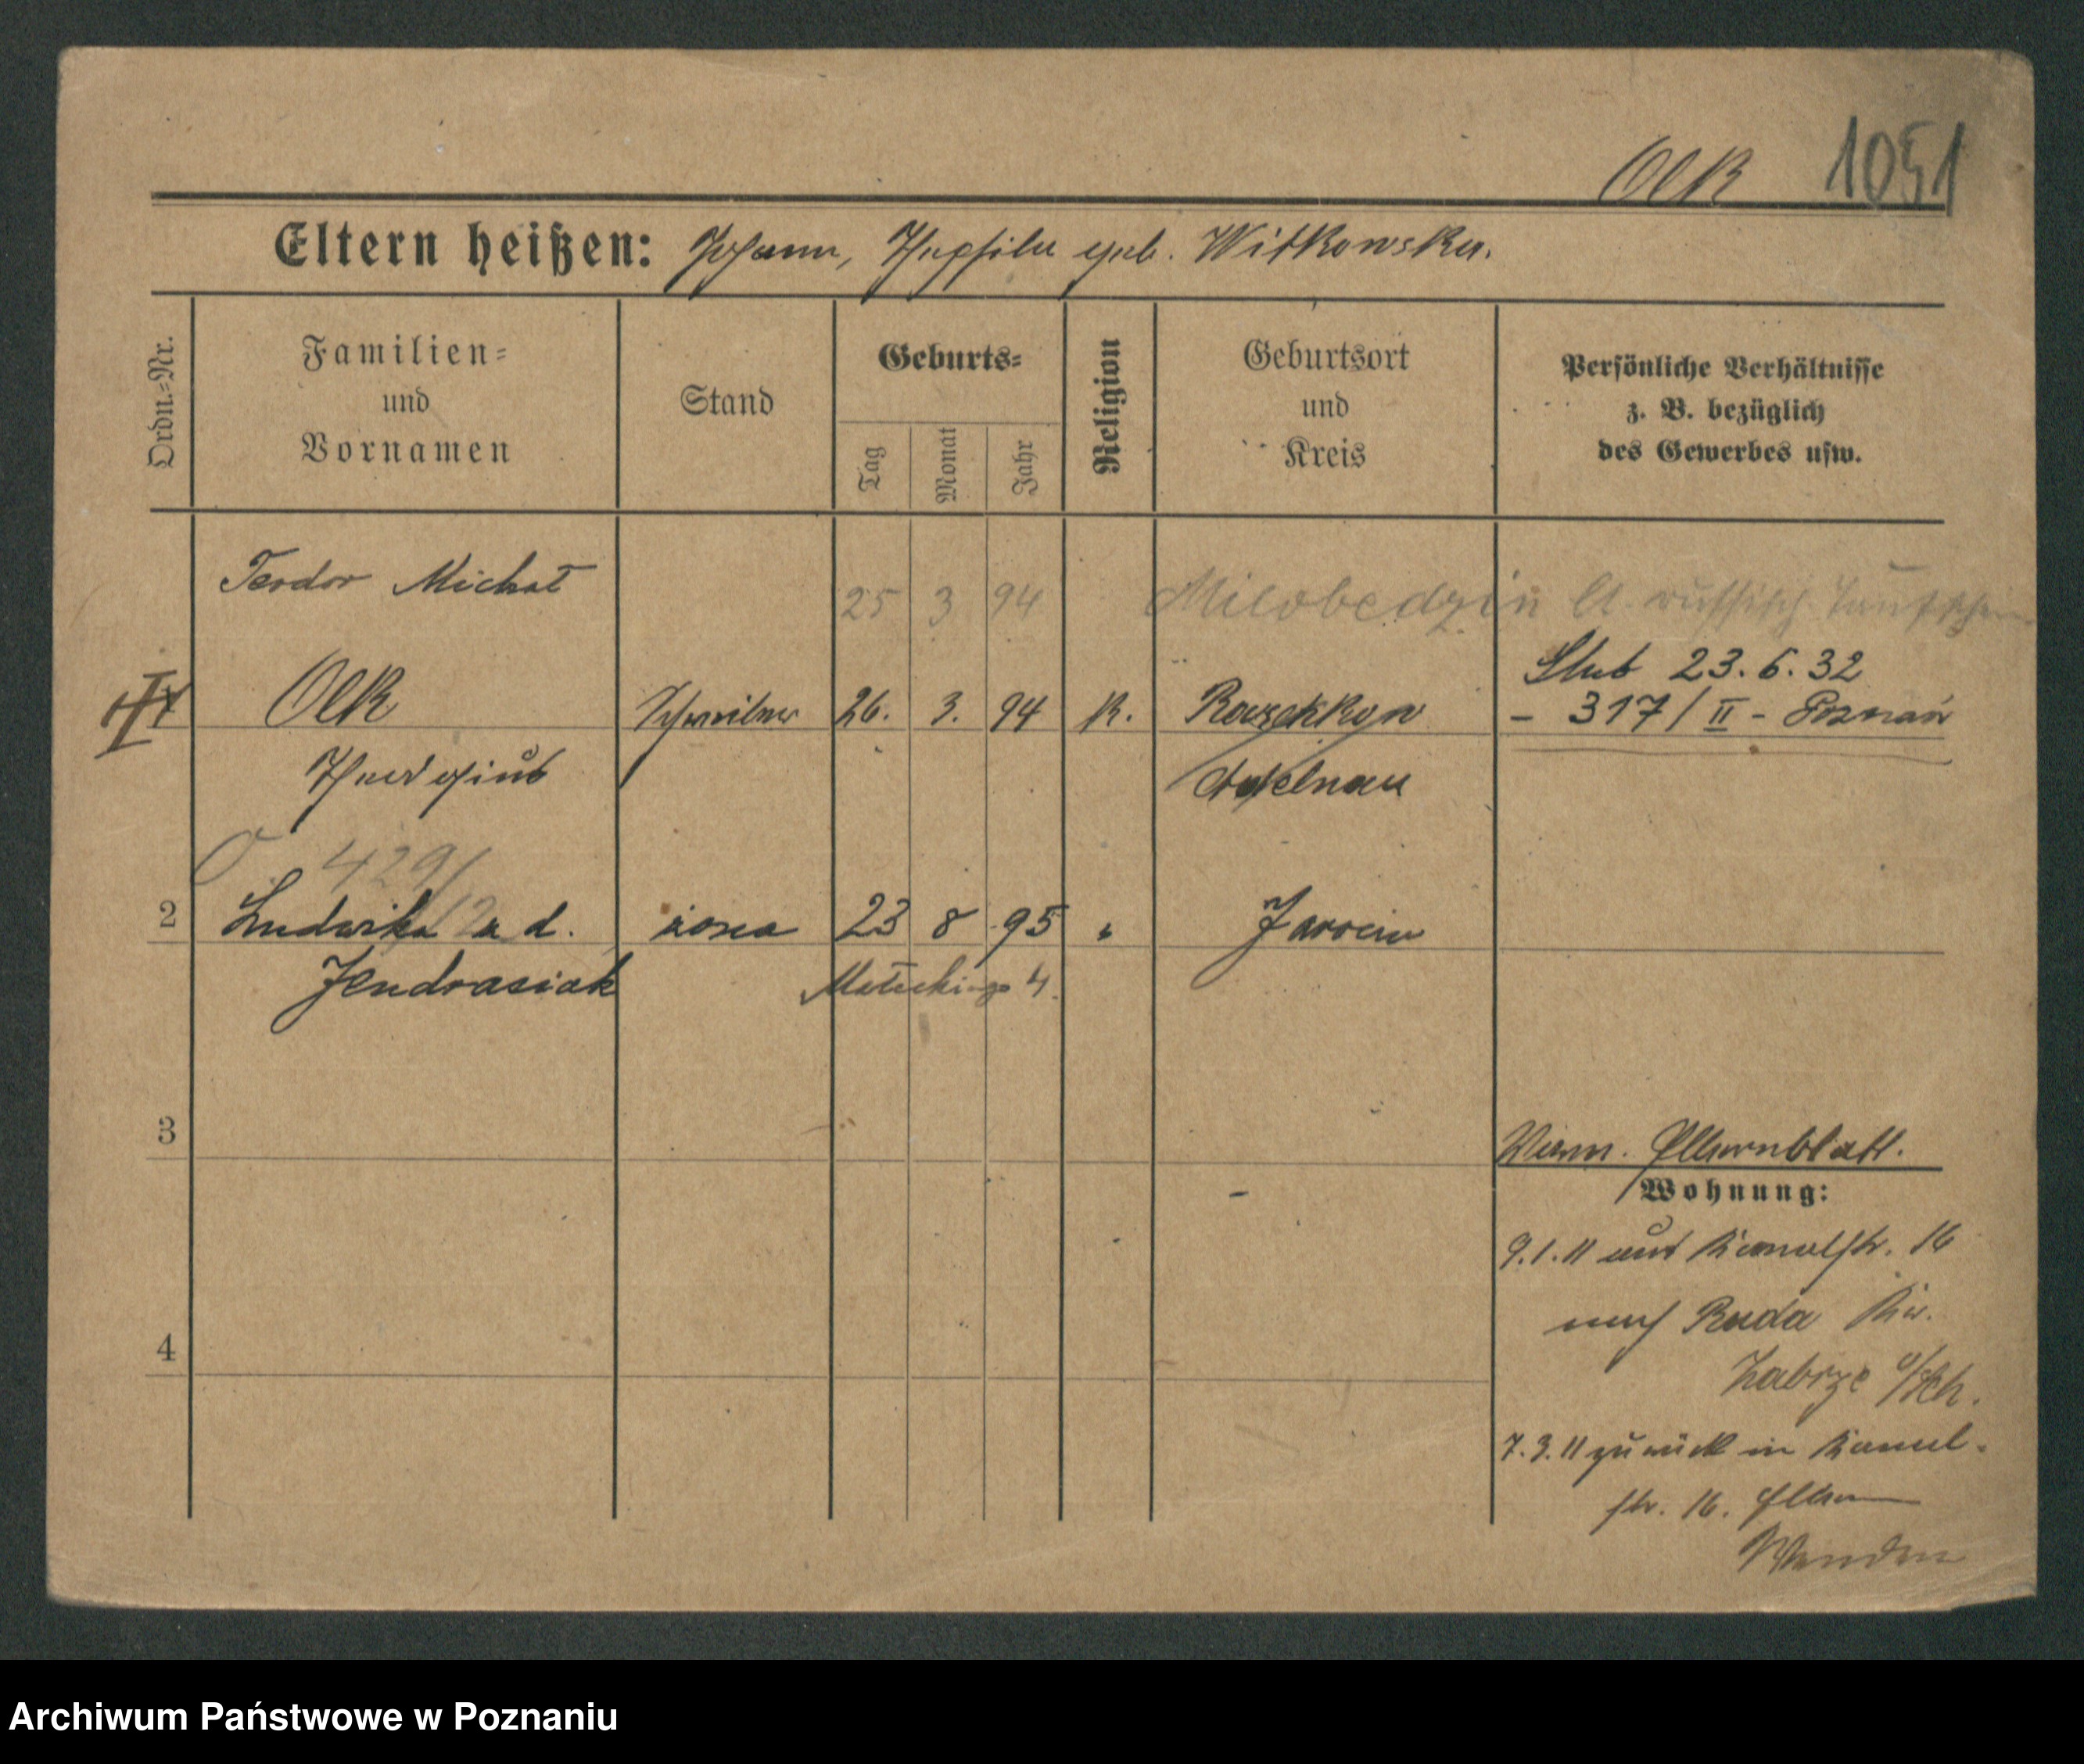 Olk 1051
Eltern heißen: Johann, Theophila geb. Witkowska.
Ordn.-Nr.
Familien-
und
Vornamen
Stand
Geburts-
Tag
Monat
Jahr
Religion
Geburtsort
und
Kreis
Persönliche Verhältnisse
z. B. bezüglich
des Gewerbes usw.
Teodor Michał 25 3 94 Milobedzin lt. russisch. Taufschein
Ślub 23.6.32
Olk Schreiber 26. 3. 94 K. Raszkow - 317/II - Poznań
Adelnau
429/12
2 Ludwika z d. żona 23 8 95 " Jarocin
Jendrasiak 4.
3
Elternblatt.
Wohnung:
9.1.11 aus Kanalstr. 16
nach Ruda Kr.
Zabrze O/Sch.
7.3.11 zurück in Kanal-
str. 16. Eltern
Wenden
4
Archiwum Państwowe w Poznaniu